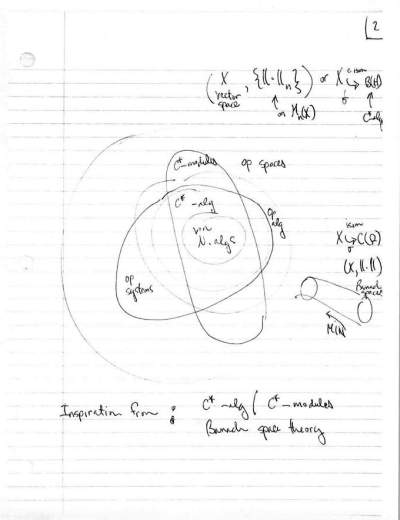 2
( X , {||·||n} ) or X ↪ B(H)
vector space
on Mn(X)
C*-alg
C*-modules
op spaces
C*-alg
op alg
von N. algs
op systems
isom
X ↪ C(Ω)
(X, ||·||)
Banach spaces
MIN
Inspiration from : C*-alg / C*-modules
Banach space theory